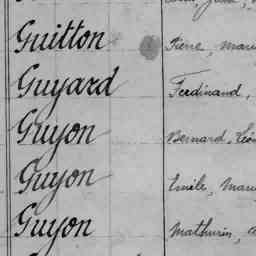 Guitton Pierre, Mari
Guyard Ferdinand,
Guyon Bernard, Léon
Guyon Emile, Mari
Guyon Mathurin,